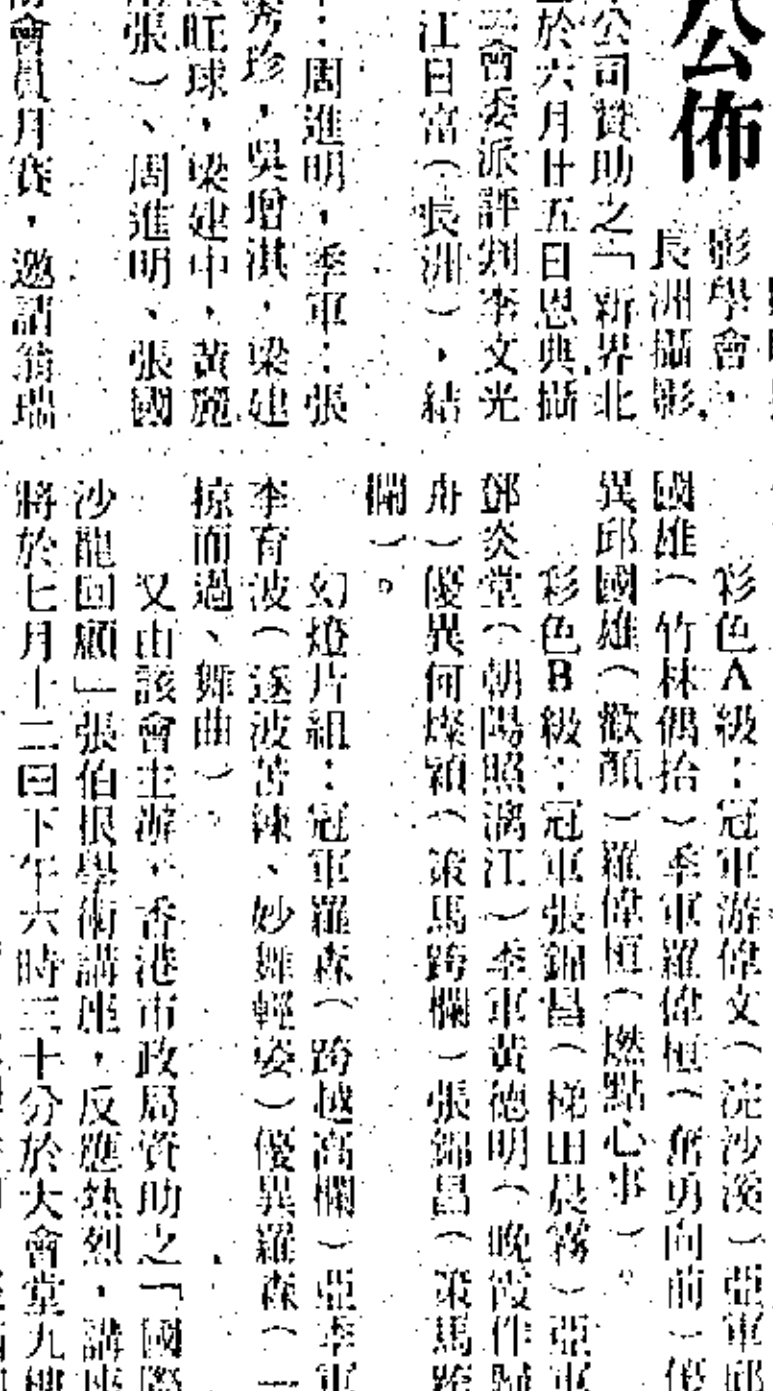 公佈
影學會，
長洲攝影
公司贊助之「新界北
於六月廿五日恩典攝
會委派評判李文光
江日富（長洲），結
：周進明，季軍：張
秀珍，吳增淇，梁建
旺球，梁建中，黃麗
張）、周進明、張國
會員月賽，邀請翁瑞
彩色A級：冠軍游偉文（浣沙溪）亞軍邱
國雄（竹林偶拾）季軍羅偉恒（奮勇向前）優
異邱國雄（歡顏）羅偉恒（燃點心事）。
彩色B級：冠軍張錦昌（梯田晨霧）亞軍
鄧炎堂（朝陽照漓江）季軍黃德明（晚霞作歸
舟）優異何燦穎（策馬跨欄）張錦昌（策馬跨
欄）。
幻燈片組：冠軍羅森（跨越高欄）亞季軍
李育波（逐波苦練、妙舞輕姿）優異羅森（一
掠而過、舞曲）。
又由該會主辦，香港市政局資助之「國際
沙龍回顧」張伯根學術講座，反應熱烈，講座
將於七月十二日下午六時三十分於大會堂九樓